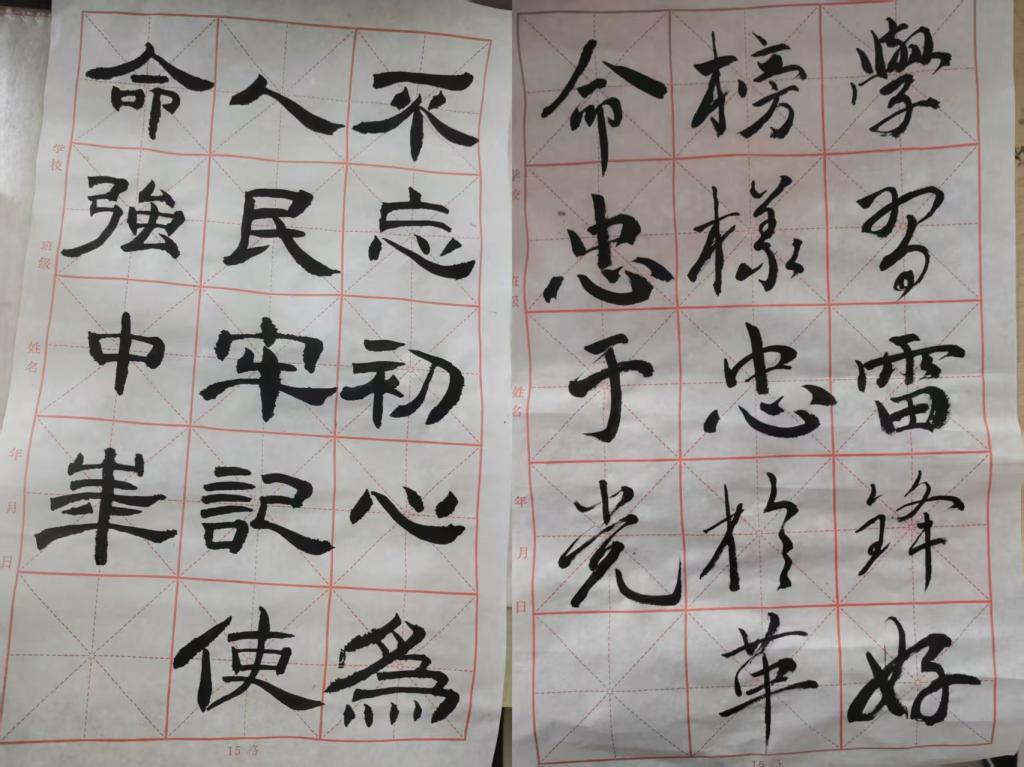 不忘初心為
人民牢記使
命強中筆
学校 班级 姓名 年 月 日
15洛
學習雷鋒好
榜樣忠於革
命忠于党
学校 班级 姓名 年 月 日